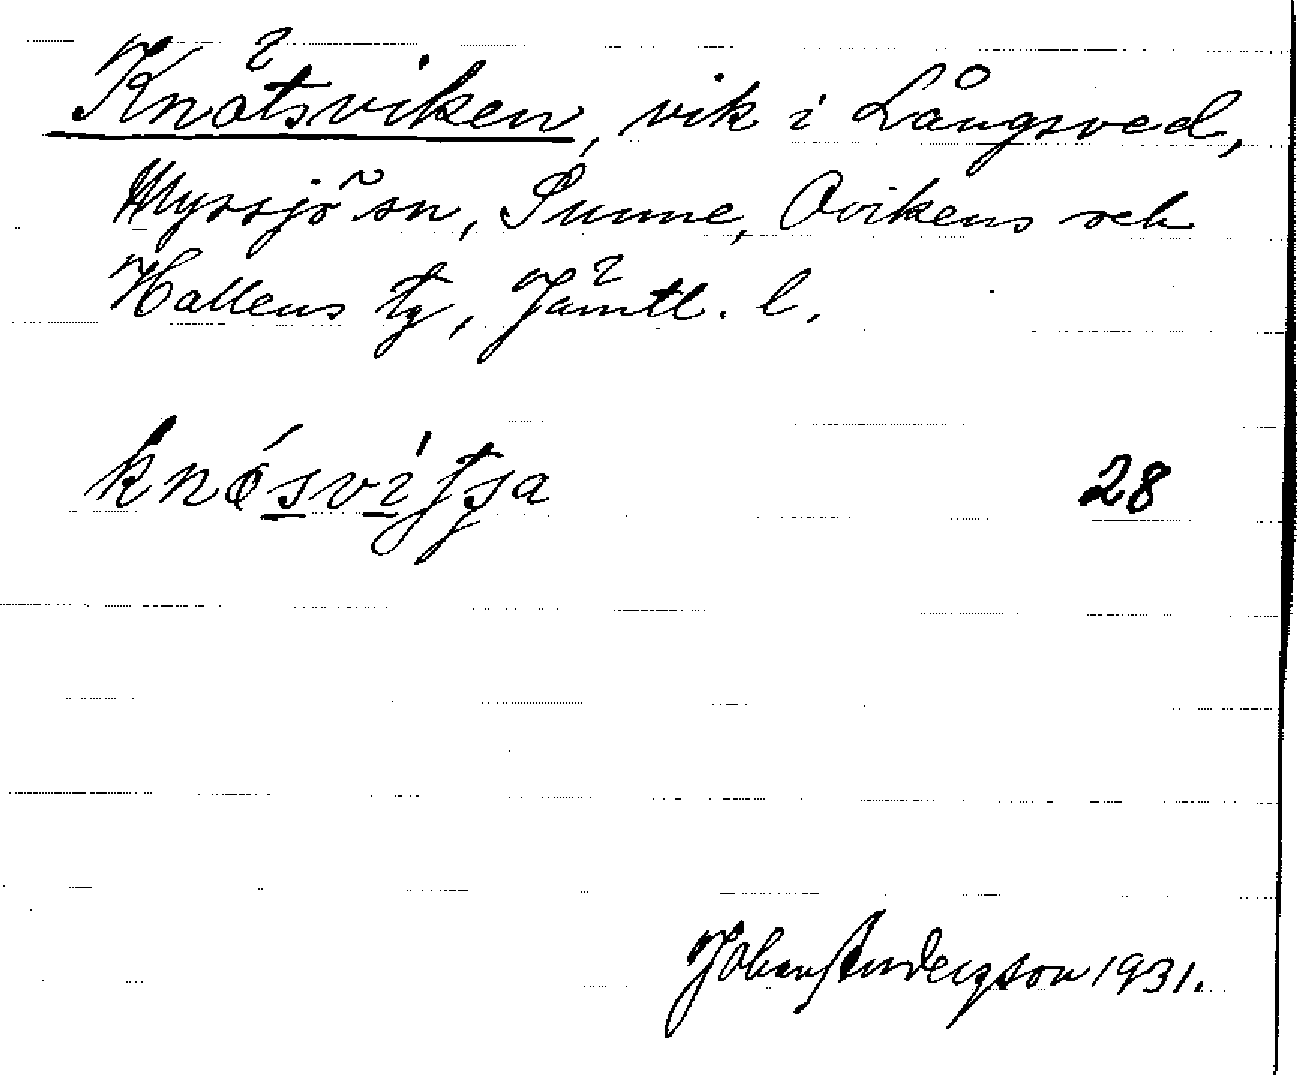 Knätsviken, vik i Långsved,
Myssjö sn, Sunne, Ovikens och
Hallens tg, Jämtl. l.
28
Johan Anderzson 1931.